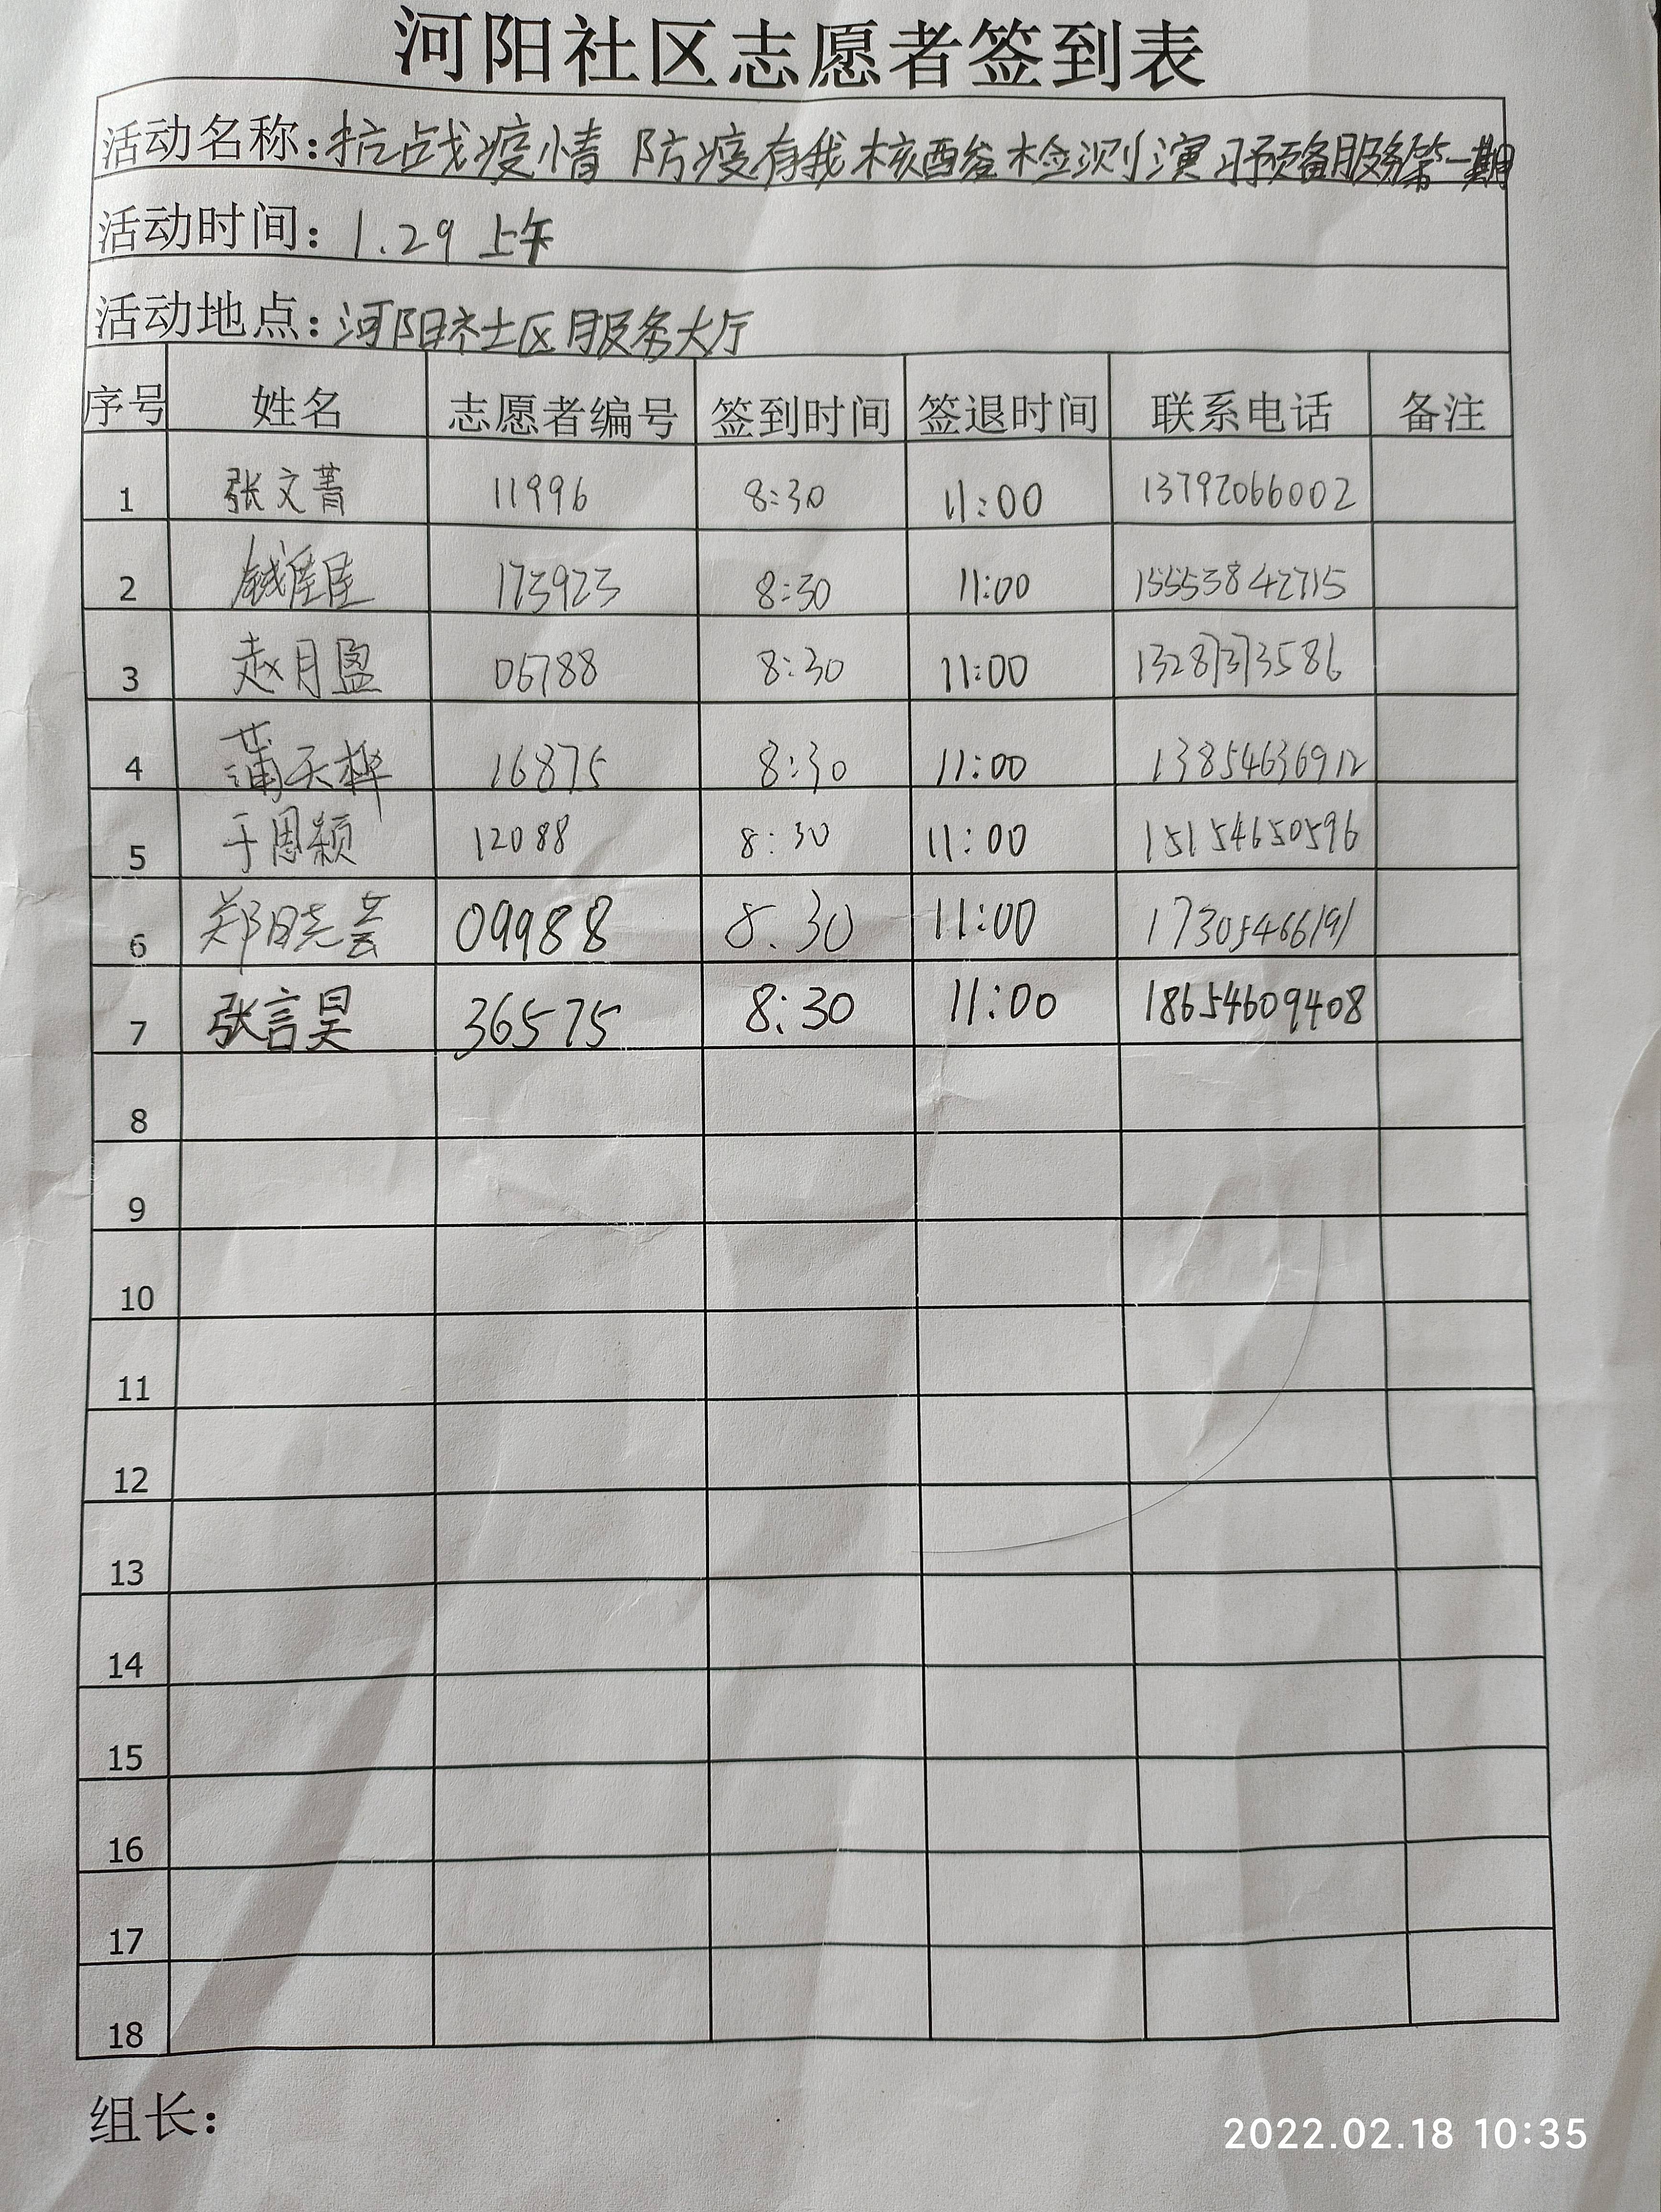 河阳社区志愿者签到表
活动名称:抗战疫情 防疫有我核酸检测演习预备服务第一期
活动时间:1.29 上午
活动地点:河阳社区服务大厅
序号 姓名 志愿者编号 签到时间 签退时间 联系电话 备注
1 张文菁 11996 8:30 11:00 13792066002
2 173923 8:30 11:00 15553842715
3 赵月盈 06788 8:30 11:00 13287373586
4 蒲天桦 16875 8:30 11:00 13854636912
5 于恩颖 12088 8:30 11:00 15154650596
6 郑晓芸 09988 8.30 11:00 17305466191
7 张言昊 36575 8:30 11:00 18654609408
8
9
10
11
12
13
14
15
16
17
18
组长:
2022.02.18 10:35